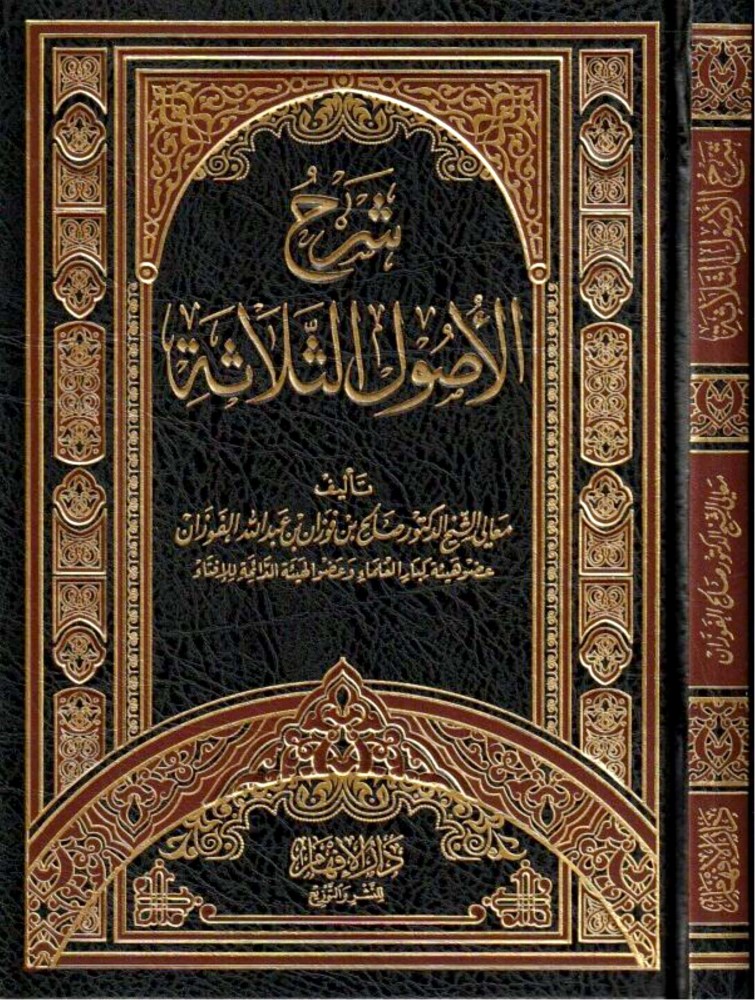 شَرْحُ
الأُصُولِ الثَّلَاثَةِ
تأليف
معالي الشيخ الدكتور صالح بن فوزان بن عبد الله الفوزان
عضو هيئة كبار العلماء وعضو الهيئة الدائمة للإفتاء
دار الإفهام
للنشر والتوزيع
شرح الأصول الثلاثة
معالي الشيخ الدكتور صالح الفوزان
دار الإفهام